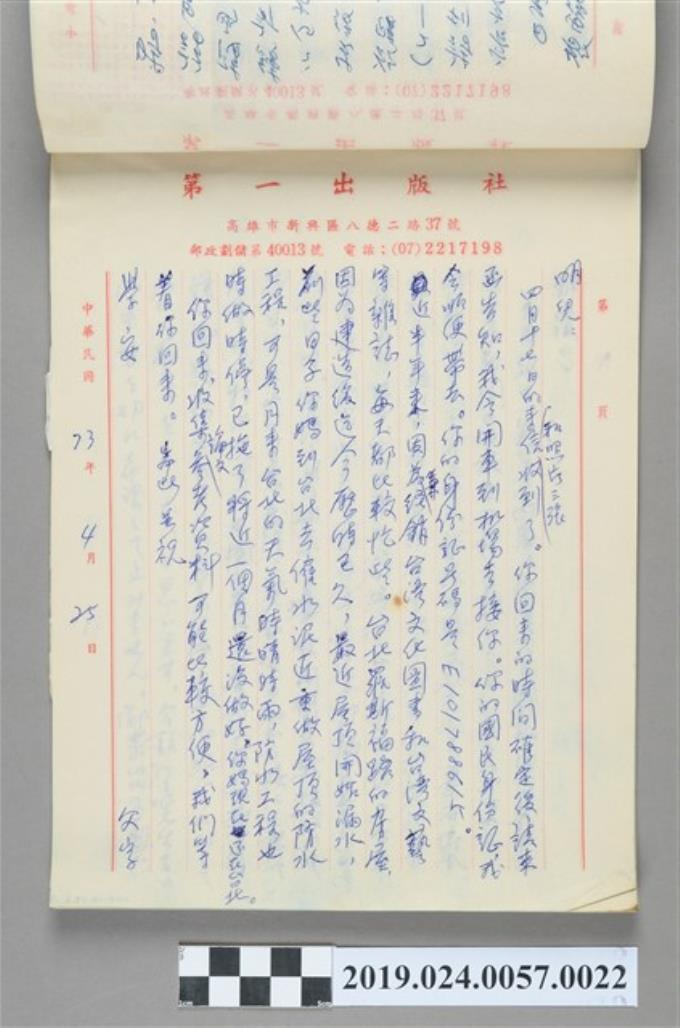 第一出版社
高雄市新興區八德二路37號
郵政劃儲第40013號 電話:(07)2217198
第 頁
明兒:
四月十七日的來信和照片三張收到了。你回來的時間確定後請來
函告知,我會開車到機場去接你。你的國民身份証我
會順便帶去。你的身份証号碼是E101788915。
近半年來,因為經銷台湾文化圖書和台湾文藝
等雜誌,每天都比較忙些。台北羅斯福路的房屋
因為建造後迄今歷時已久,最近屋頂開始漏水,
前些日子你媽到台北去催水泥匠重做屋頂的防水
工程,可是月來台北的天氣時晴時雨,防水工程也
時做時停,已拖了將近一個月還沒做好。你媽現在還在台北。
你回來收集論文參考資料可能比較方便,我們等
著你回來。專此 並祝
學安 父字
中華民國 73 年 4 月 25 日
2019.024.0057.0022